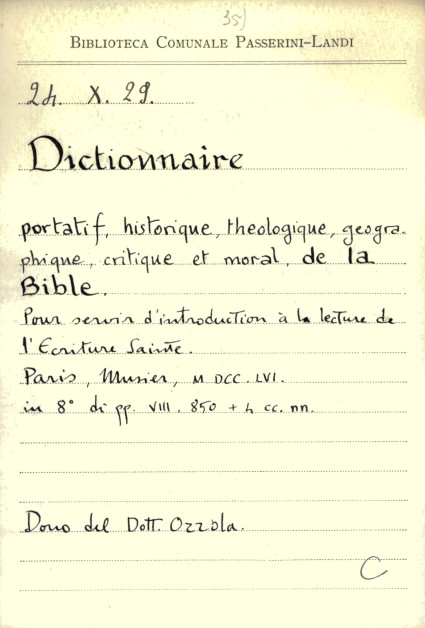 35)
BIBLIOTECA COMUNALE PASSERINI-LANDI
24. X. 29.
Dictionnaire
portatif, historique, theologique, geogra-
phique, critique et moral, de la
Bible.
Pour servir d'introduction à la lecture de
l'Ecriture Sainte.
Paris, Musier, M DCC. LVI.
in 8° di pp. VIII. 850 + 4 cc. nn.
Dono del Dott. Ozzola.
C